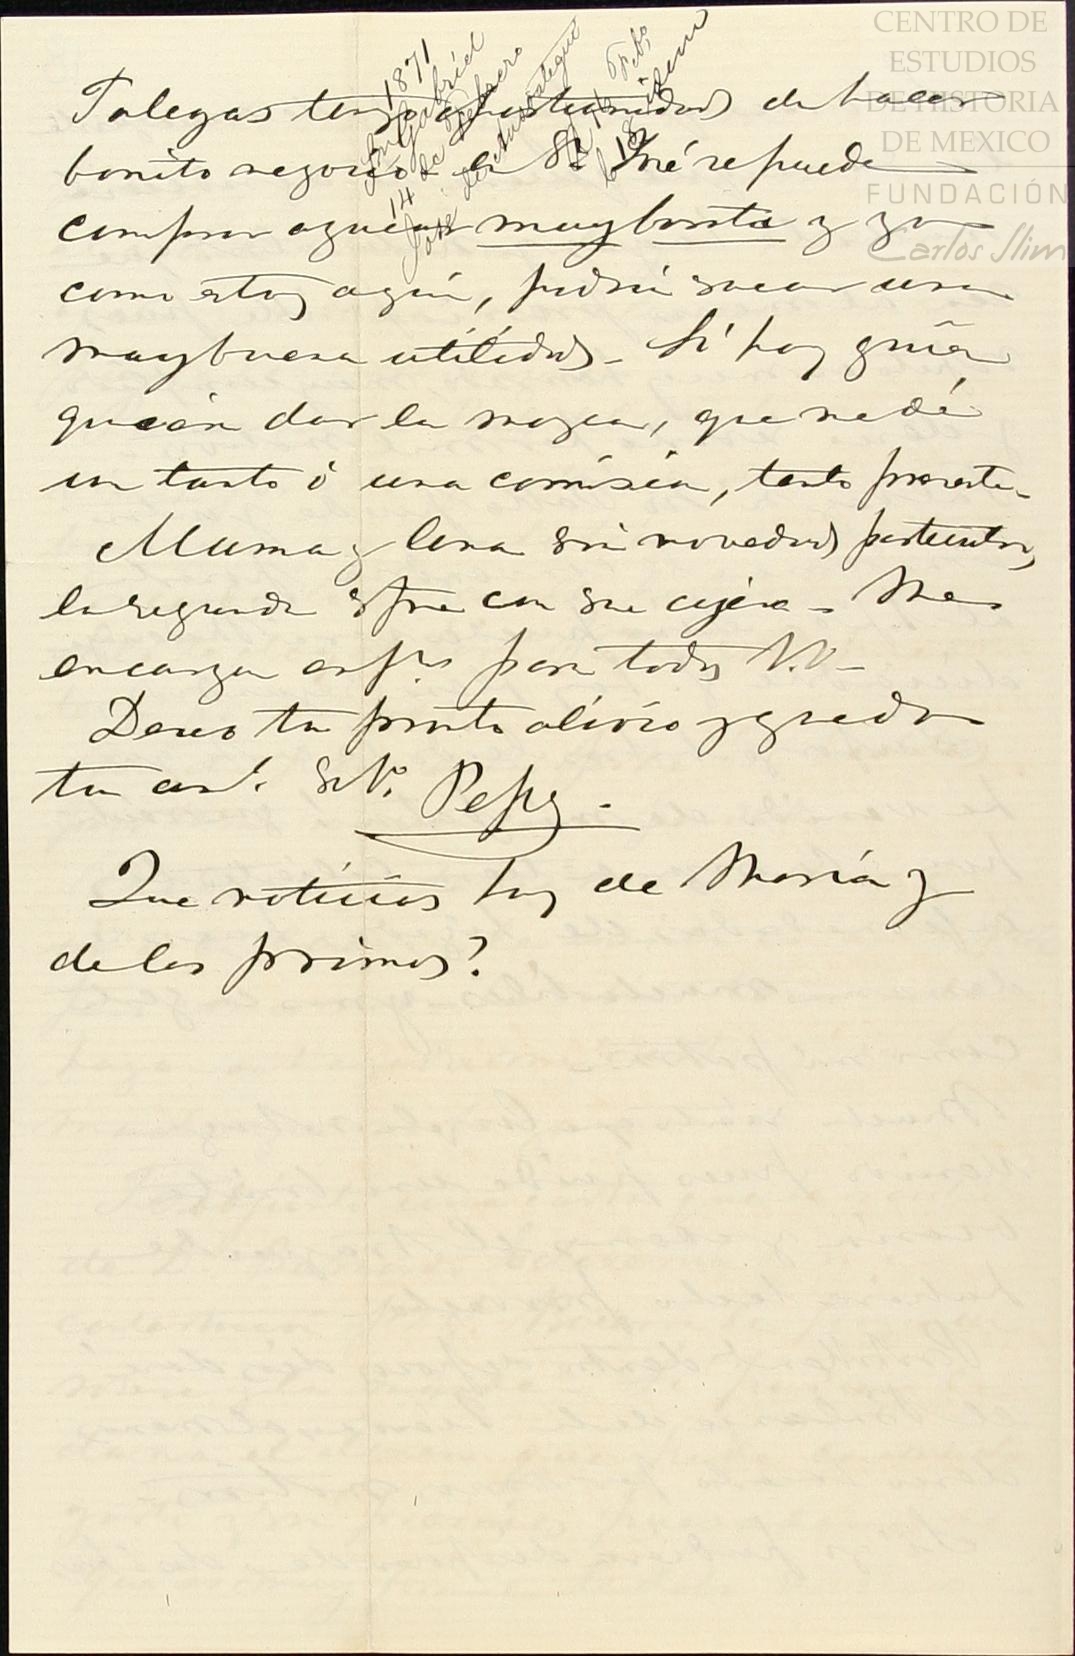 CENTRO DE
ESTUDIOS
DE HISTORIA
DE MEXICO
FUNDACIÓN
Carlos Slim
1871
Sn. Gabriel
14 de Febrero
José de
18 idem
Talegas tengo oportunidad de hacer
bonito negocio. En Sn. José se puede
comprar azúcar muy bonita y yo
como estoy aquí, podría sacar una
muy buena utilidad. Si hay quien
quiera dar la mosca, que me dé
un tanto ó una comisión, tanto presente.
Mama y Lena sin novedad particular,
la segunda sigue con su cojera. Me
encarga para todos V.V.
Deseo tu pronto alivio y queda
tu Pepe.
Que noticias hay de María y
de los primos?